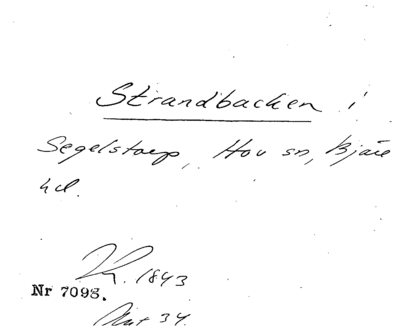 Strandbacken i
Segelstorp, Hov sn, Bjäre
hd.
1843
Nr 7098.
34.